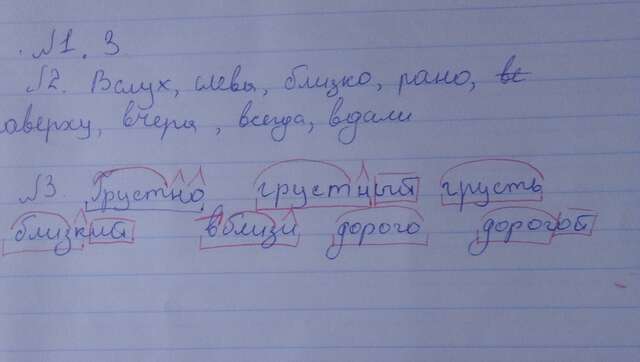 №1. 3
№2. Вслух, слева, близко, рано, вс
аверху, вчера, всегда, вдали
№3 Грустно грустный грусть
близкий вблизи дорого дорогой